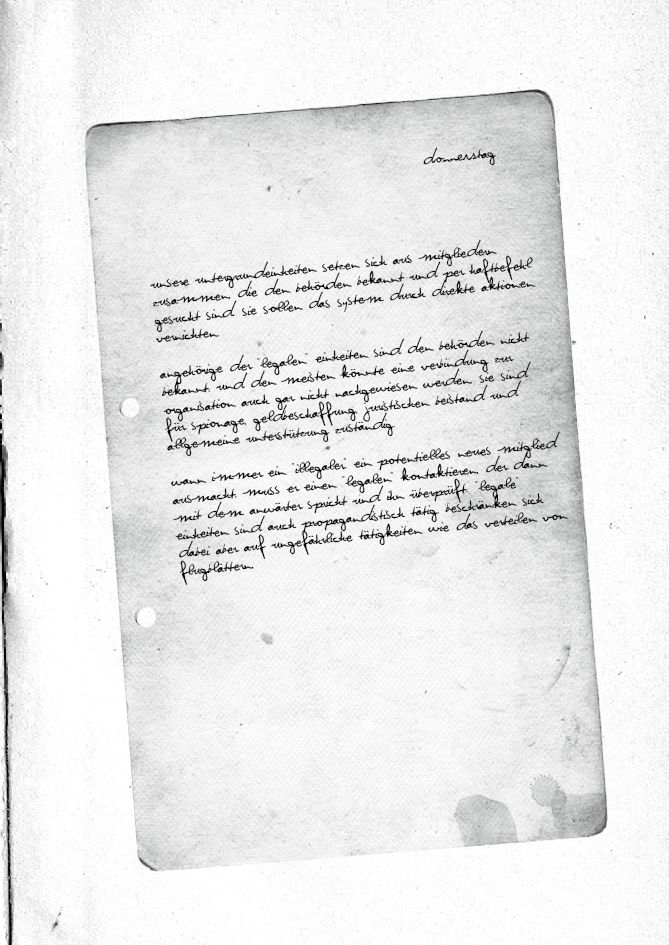 donnerstag
unsere untergrundeinheiten setzen sich aus mitgliedern
zusammen, die den behörden bekannt und per haftbefehl
gesucht sind sie sollen das system durch direkte aktionen
vernichten
angehörige der "legalen" einheiten sind den behörden nicht
bekannt. und den meisten könnte eine verbindung zur
organisation auch gar nicht nachgewiesen werden sie sind
für spionage, geldbeschaffung, juristischen beistand und
allgemeine unterstützung zuständig
wann immer ein "illegaler" ein potentielles neues mitglied
ausmacht, muss er einen "legalen" kontaktieren, der dann
mit dem anwärter spricht und ihn überprüft. "legale"
einheiten sind auch propagandistisch tätig beschränken sich
dabei aber auf ungefährliche tätigkeiten wie das verteilen von
flugblättern